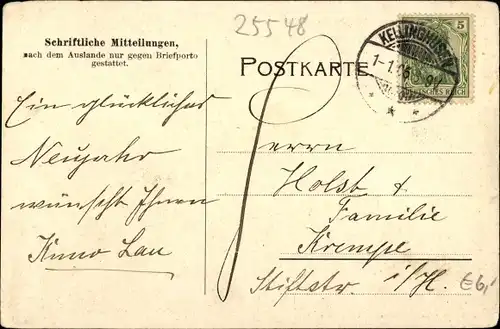 25548
Schriftliche Mitteilungen,
nach dem Auslande nur gegen Briefporto
gestattet.
POSTKARTE
KELLINGHUSEN
1-1.06
5
DEUTSCHES REICH
Ein glücklicher
Neujahr
wünscht Ihnen
Kuno Lau
Herrn
Holst &
Familie
Krempe
i/H.
Stiftstr.
€6,-